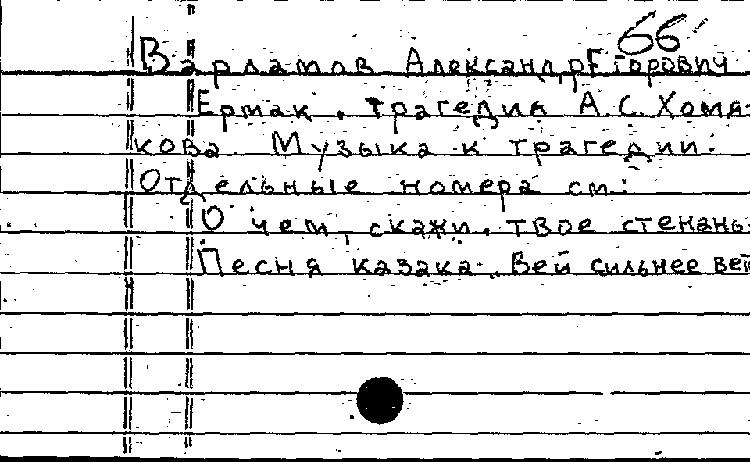 66
Варламов Александр Егорович
Ермак. Трагедия А.С. Хомя-
кова. Музыка к трагедии.
Отдельные номера см:
О чем, скажи, твое стенань
Песня казака. Вей сильнее вей